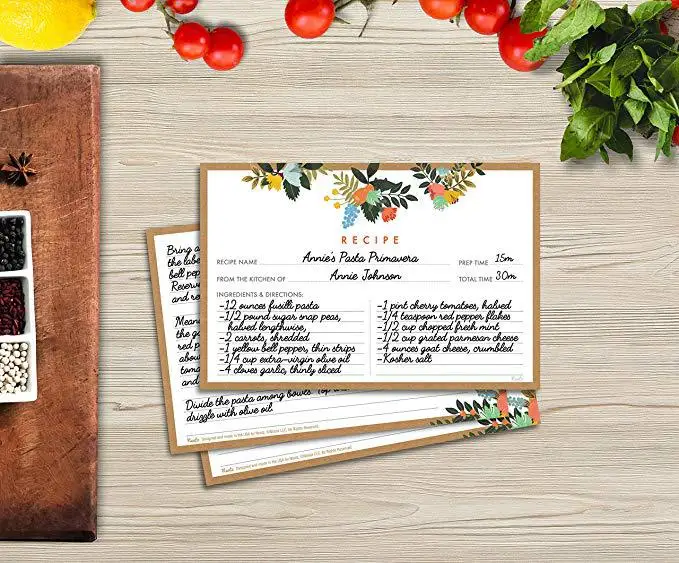 RECIPE
RECIPE NAME Annie's Pasta Primavera PREP TIME 15m
FROM THE KITCHEN OF Annie Johnson TOTAL TIME 30m
INGREDIENTS & DIRECTIONS:
-12 ounces fusilli pasta
-1/2 pound sugar snap peas,
halved lengthwise,
-2 carrots, shredded
-1 yellow bell pepper, thin strips
-1/4 cup extra-virgin olive oil
-4 cloves garlic, thinly sliced
-1 pint cherry tomatoes, halved
-1/4 teaspoon red pepper flakes
-1/2 cup chopped fresh mint
-1/2 cup grated parmesan cheese
-4 ounces goat cheese, crumbled
-Kosher salt
Bring a
the labe
bell pep
Reserv
and re
Mean
the go
red p
abou
toma
to
and
Divide the pasta among bowls. Top
drizzle with olive oil.
Designed and made in the USA for
LLC. All Rights Reserved.
Designed and made in the USA for
LLC. All Rights Reserved.